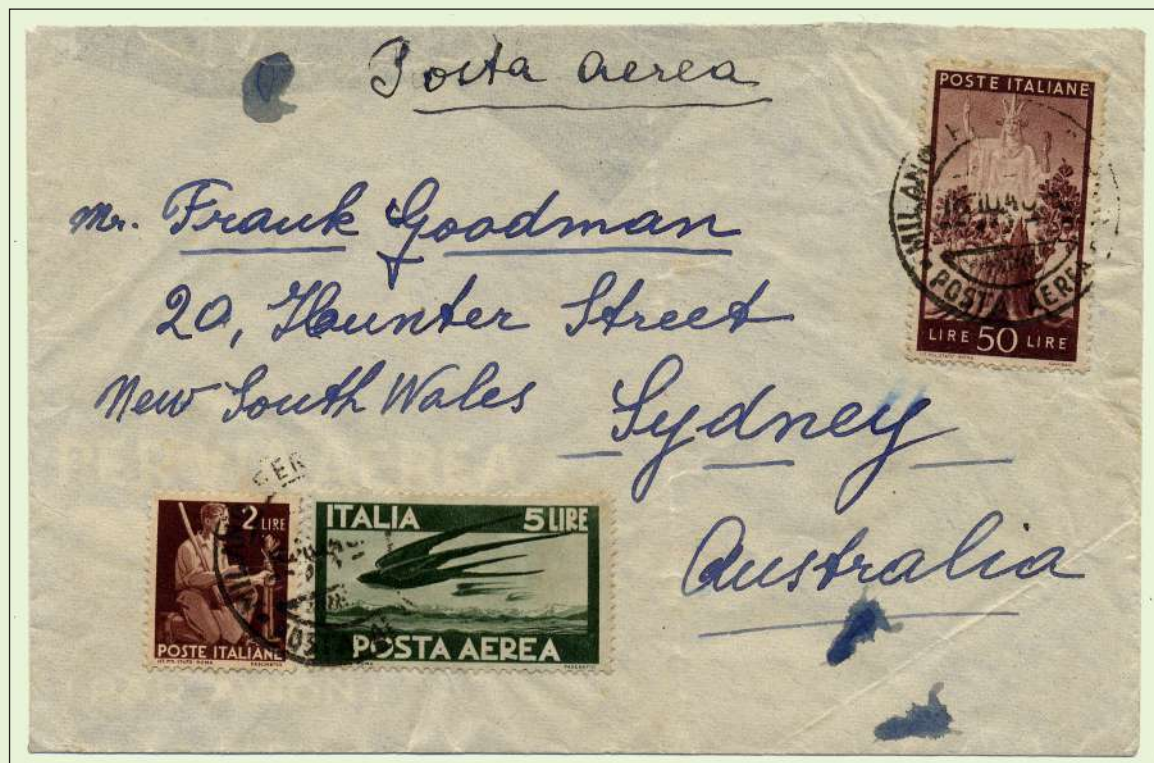 Posta aerea
POSTE ITALIANE
MILANO
POSTA AEREA
LIRE 50 LIRE
Mr. Frank Goodman
20, Hunter Street
New South Wales Sydney
Australia
2 LIRE
POSTE ITALIANE
ITALIA 5 LIRE
POSTA AEREA